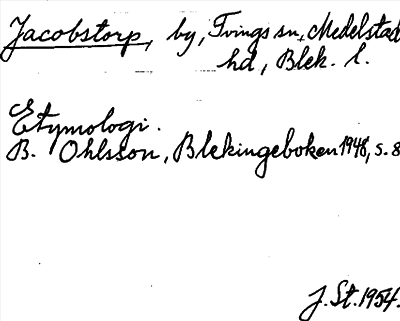 Jacobstorp, by, Tvings sn, Medelstad
hd, Blek. l.
Etymologi.
B. Ohlsson, Blekingeboken 1948, s. 8
J. St. 1954.